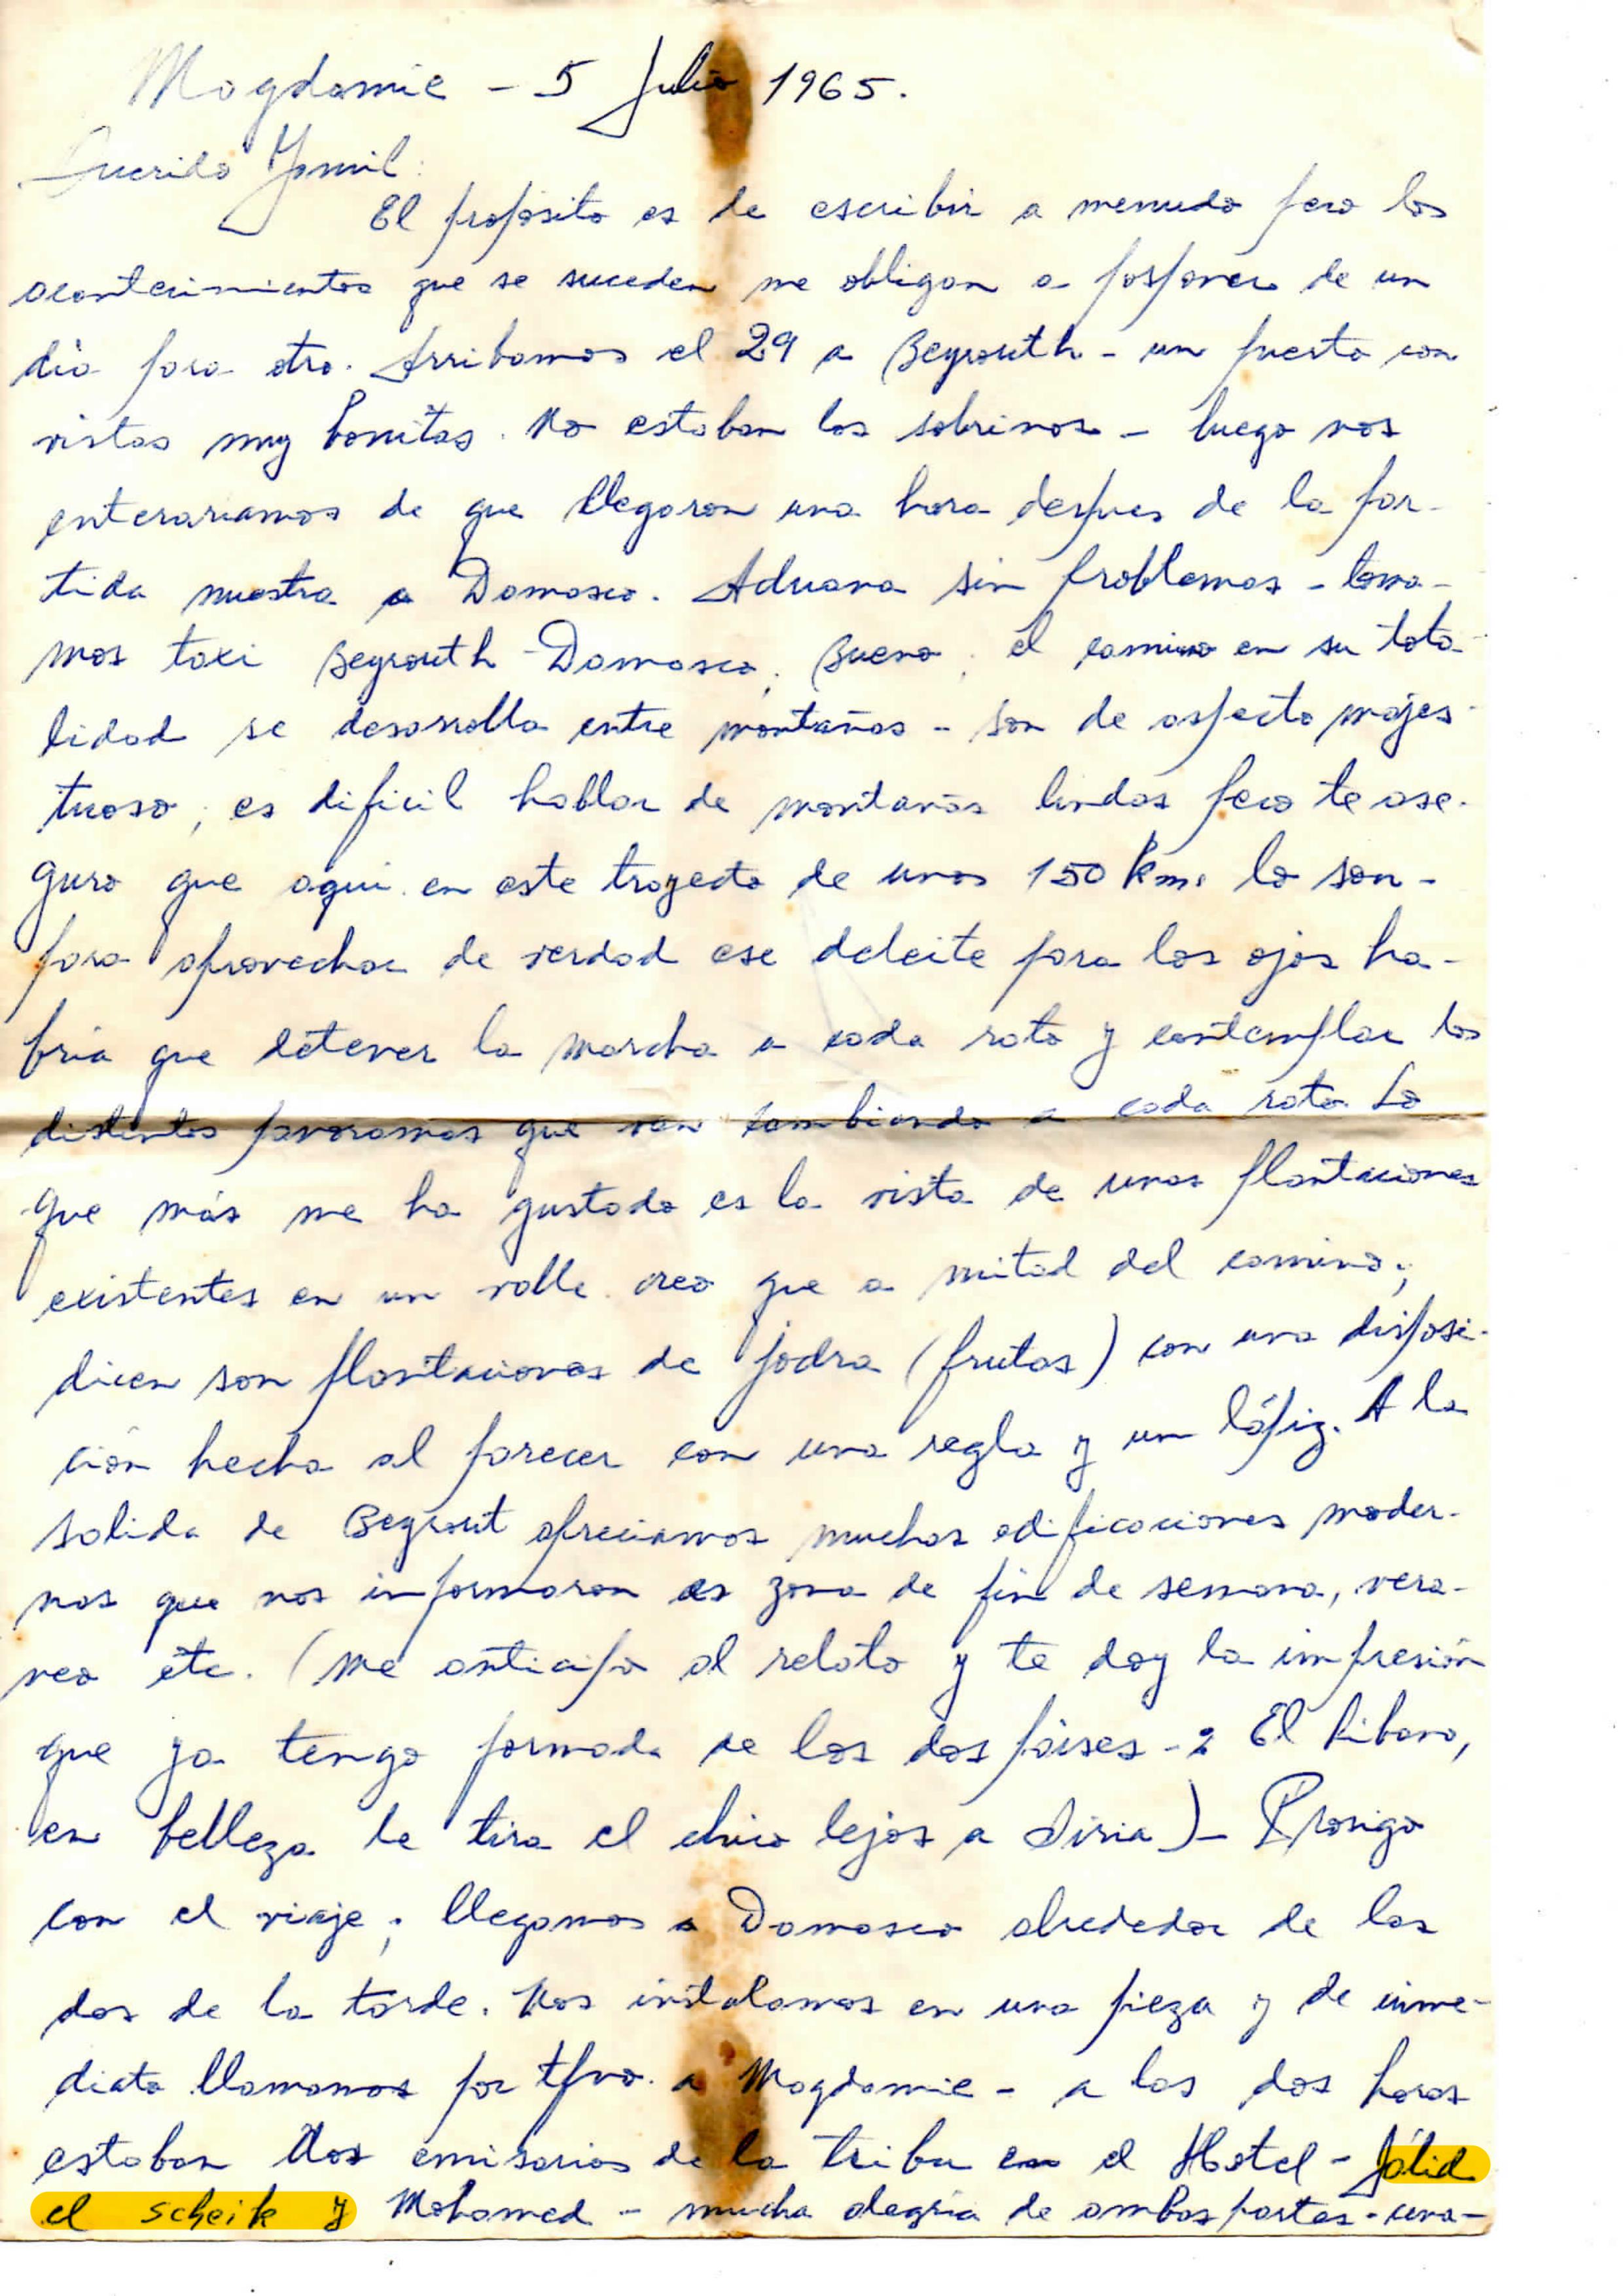 Mogdamie - 5 Julio 1965.
Querido Yamil:
El propósito es de escribir a menudo pero los
acontecimientos que se suceden me obligan a posponer de un
día para otro. Arribamos el 29 a Beyrouth - un puerto con
vistas muy bonitas. No estaban los sobrinos - luego nos
enterariamos de que llegaron una hora despues de la par-
tida nuestra a Damasco. Aduana sin problemas - toma-
mos taxi Beyrouth - Damasco. Bueno, el camino en su tota-
lidad se desarrolla entre montañas - son de aspecto majes-
tuoso, es dificil hablar de montañas lindas pero te ase-
guro que aqui en este trayecto de unos 150 km. lo son -
para aprovechar de verdad ese deleite para los ojos ha-
bria que detener la marcha a cada rato y contemplar los
distintos panoramas que van cambiando a cada rato. Lo
que más me ha gustado es la vista de unas plantaciones
existentes en un valle creo que a mitad del camino;
dicen son plantaciones de jodra (frutas) con una disposi-
ción hecha al parecer con una regla y un lápiz. A la
salida de Beyrout apreciamos muchas edificaciones moder-
nas que nos informaron es zona de fin de semana, vera-
neo etc. (me anticipo al relato y te doy la impresión
que ya tengo formada de los dos paises - El Libano,
en belleza le tira el chico lejos a Siria) - Prosigo
con el viaje; llegamos a Damasco alrededor de las
dos de la tarde. Nos instalamos en una pieza y de inme-
diato llamamos por tfno. a Mogdamie - a las dos horas
estaban dos emisarios de la tribu en el Hotel - Jálid
el scheik y Mohamed - mucha alegria de ambas partes - una-